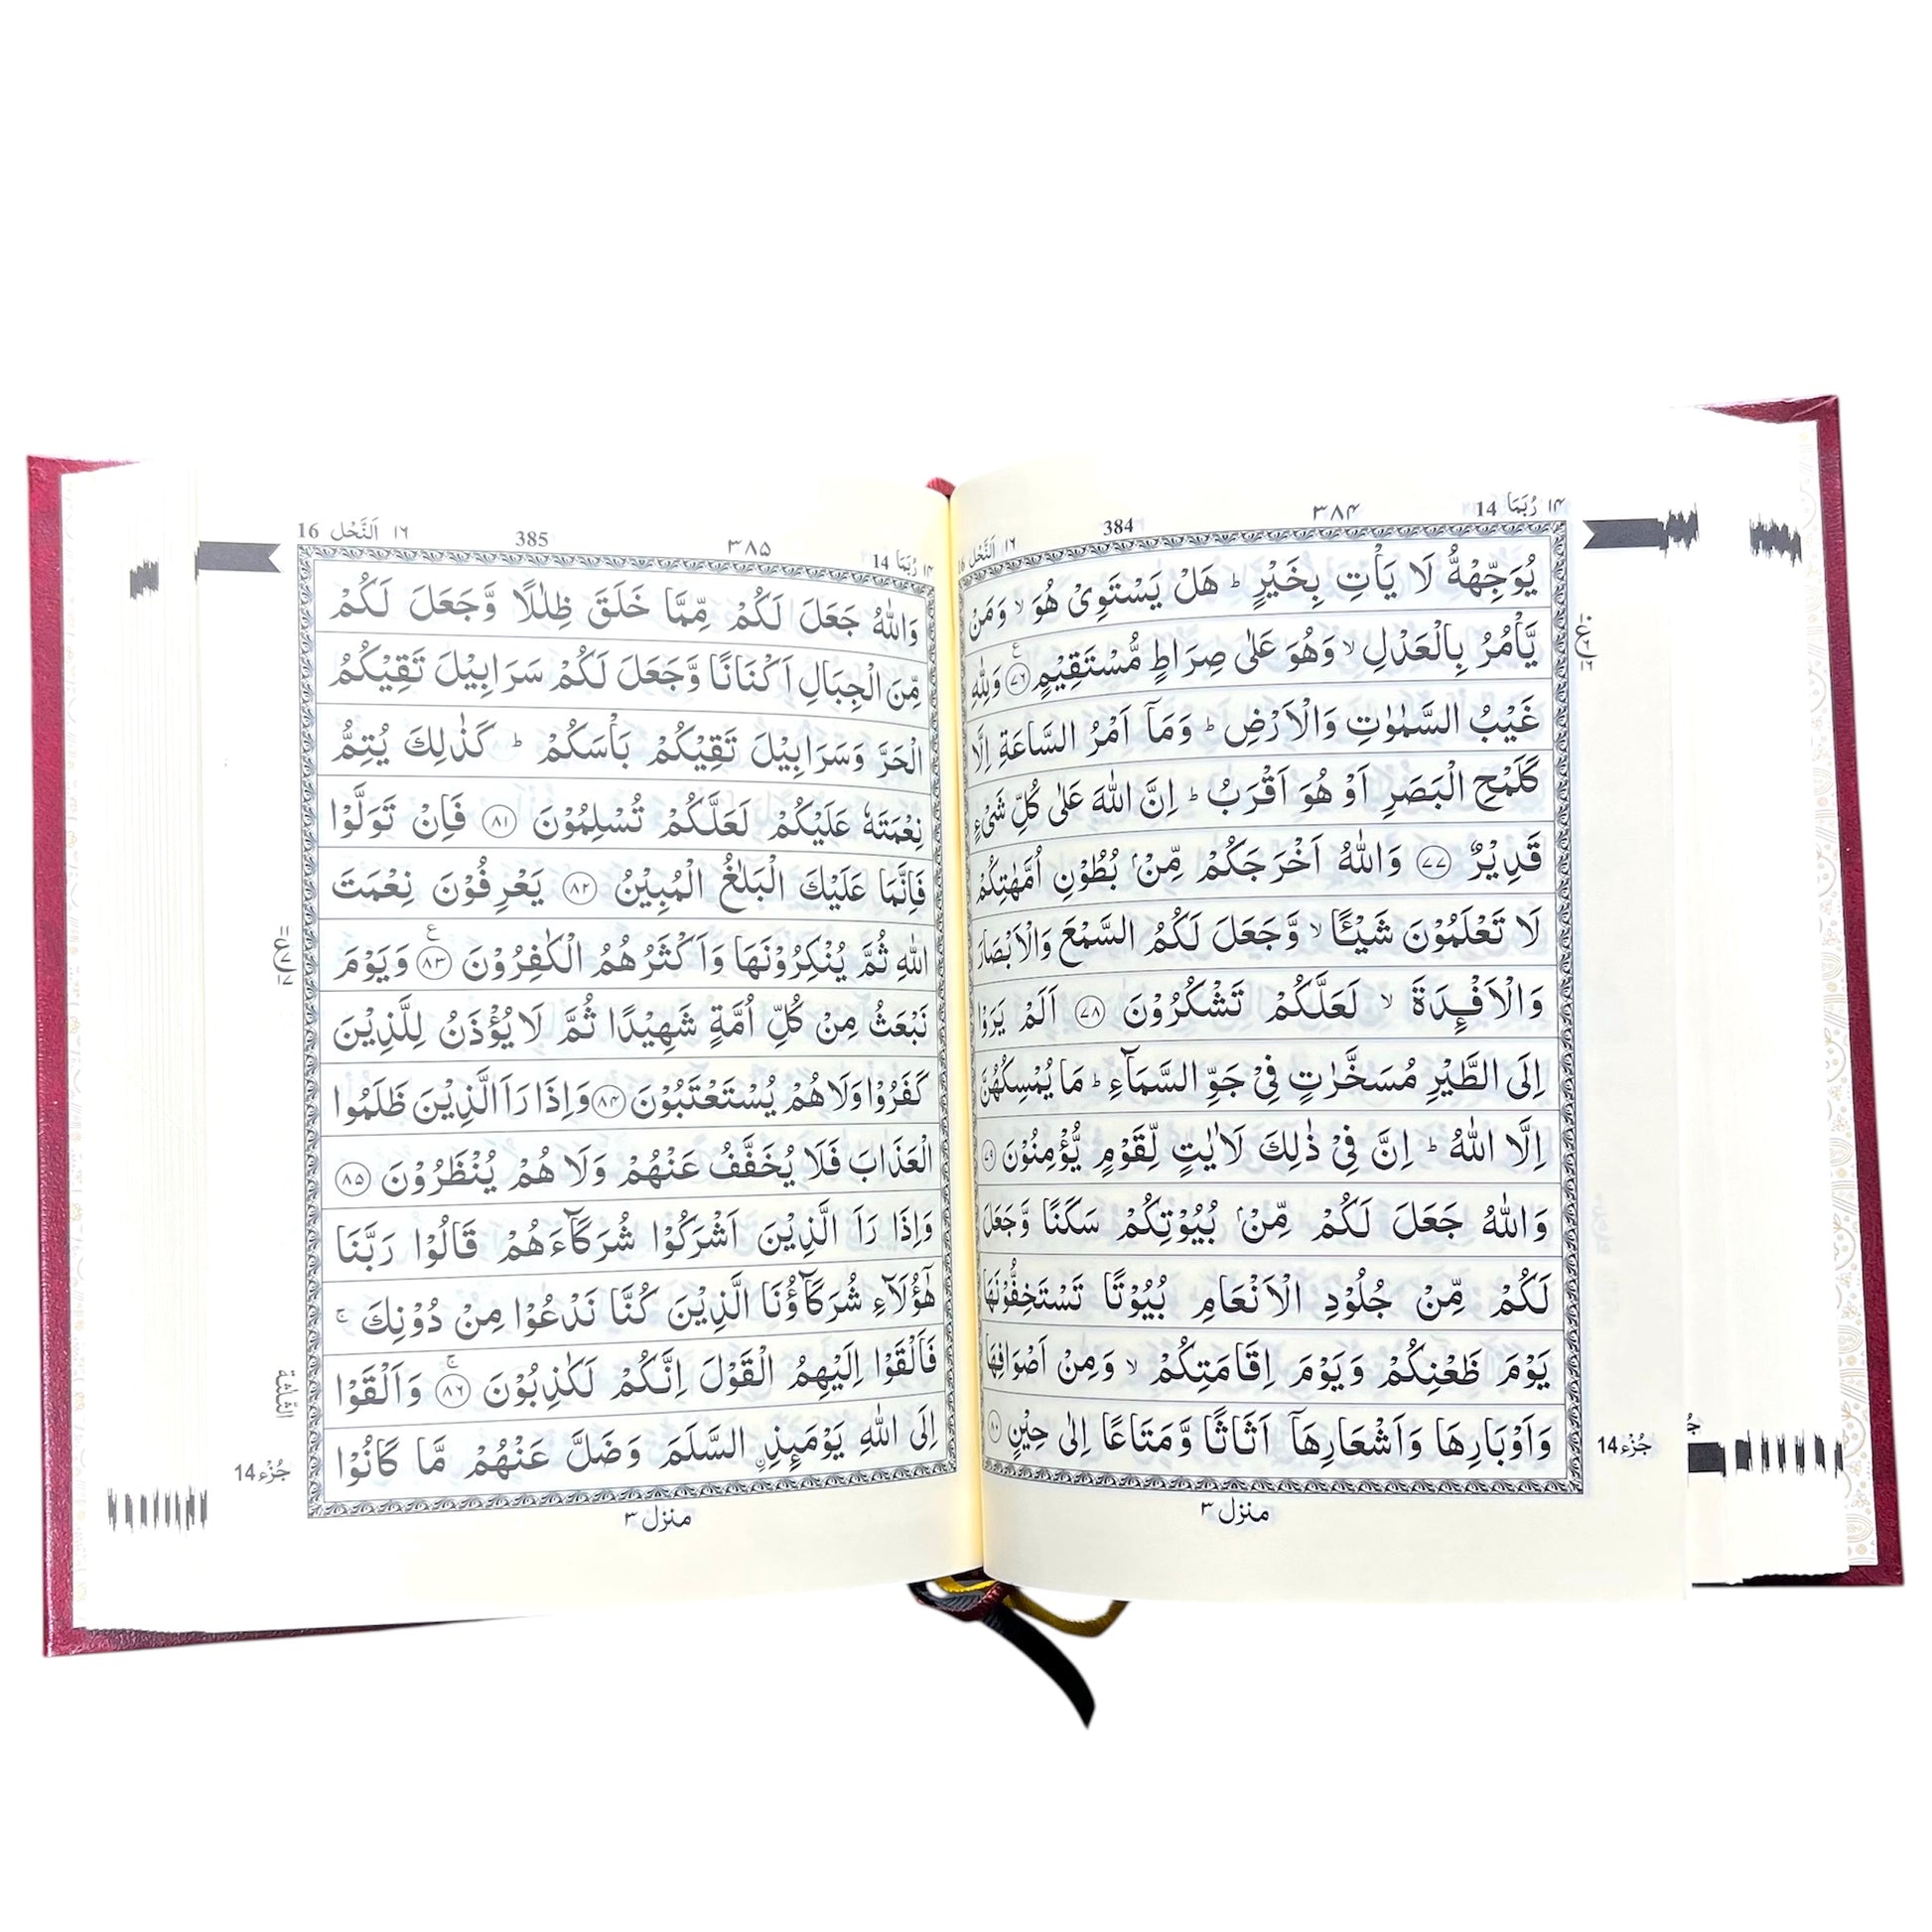 ١٤ رُبَمَا 14
٣٨٤
384
١٦ اَلنَّحْل 16
يُوَجِّهْهُّ لَا يَاْتِ بِخَيْرٍ ؕ هَلْ يَسْتَوِىْ هُوَ ۙ وَمَنْ
يَّاْمُرُ بِالْعَدْلِ ۙ وَهُوَ عَلٰى صِرَاطٍ مُّسْتَقِيْمٍ ٧٦ ع وَلِلّٰهِ
غَيْبُ السَّمٰوٰتِ وَالْاَرْضِ ؕ وَمَاۤ اَمْرُ السَّاعَةِ اِلَّا
كَلَمْحِ الْبَصَرِ اَوْ هُوَ اَقْرَبُ ؕ اِنَّ اللّٰهَ عَلٰى كُلِّ شَىْءٍ
قَدِيْرٌ ٧٧ وَاللّٰهُ اَخْرَجَكُمْ مِّنْۢ بُطُوْنِ اُمَّهٰتِكُمْ
لَا تَعْلَمُوْنَ شَيْـًٔا ۙ وَّجَعَلَ لَكُمُ السَّمْعَ وَالْاَبْصَارَ
وَالْاَفْـِٕدَةَ ۙ لَعَلَّكُمْ تَشْكُرُوْنَ ٧٨ اَلَمْ يَرَوْا
اِلَى الطَّيْرِ مُسَخَّرٰتٍ فِىْ جَوِّ السَّمَآءِ ؕ مَا يُمْسِكُهُنَّ
اِلَّا اللّٰهُ ؕ اِنَّ فِىْ ذٰلِكَ لَاٰيٰتٍ لِّقَوْمٍ يُّؤْمِنُوْنَ ٧٩
وَاللّٰهُ جَعَلَ لَكُمْ مِّنْۢ بُيُوْتِكُمْ سَكَنًا وَّجَعَلَ
لَكُمْ مِّنْ جُلُوْدِ الْاَنْعَامِ بُيُوْتًا تَسْتَخِفُّوْنَهَا
يَوْمَ ظَعْنِكُمْ وَيَوْمَ اِقَامَتِكُمْ ۙ وَمِنْ اَصْوَافِهَا
وَاَوْبَارِهَا وَاَشْعَارِهَاۤ اَثَاثًا وَّمَتَاعًا اِلٰى حِيْنٍ ٨٠
جُزْء 14
منزل ٣
١٤ رُبَمَا 14
٣٨٥
385
١٦ اَلنَّحْل 16
وَاللّٰهُ جَعَلَ لَكُمْ مِّمَّا خَلَقَ ظِلٰلًا وَّجَعَلَ لَكُمْ
مِّنَ الْجِبَالِ اَكْنَانًا وَّجَعَلَ لَكُمْ سَرَابِيْلَ تَقِيْكُمُ
الْحَرَّ وَسَرَابِيْلَ تَقِيْكُمْ بَاْسَكُمْ ؕ كَذٰلِكَ يُتِمُّ
نِعْمَتَهٗ عَلَيْكُمْ لَعَلَّكُمْ تُسْلِمُوْنَ ٨١ فَاِنْ تَوَلَّوْا
فَاِنَّمَا عَلَيْكَ الْبَلٰغُ الْمُبِيْنُ ٨٢ يَعْرِفُوْنَ نِعْمَتَ
اللّٰهِ ثُمَّ يُنْكِرُوْنَهَا وَاَكْثَرُهُمُ الْكٰفِرُوْنَ ٨٣ ع وَيَوْمَ
نَبْعَثُ مِنْ كُلِّ اُمَّةٍ شَهِيْدًا ثُمَّ لَا يُؤْذَنُ لِلَّذِيْنَ
كَفَرُوْا وَلَا هُمْ يُسْتَعْتَبُوْنَ ٨٤ وَاِذَا رَاَ الَّذِيْنَ ظَلَمُوا
الْعَذَابَ فَلَا يُخَفَّفُ عَنْهُمْ وَلَا هُمْ يُنْظَرُوْنَ ٨٥
وَاِذَا رَاَ الَّذِيْنَ اَشْرَكُوْا شُرَكَآءَهُمْ قَالُوْا رَبَّنَا
هٰٓؤُلَآءِ شُرَكَآؤُنَا الَّذِيْنَ كُنَّا نَدْعُوْا مِنْ دُوْنِكَ ۚ
فَاَلْقَوْا اِلَيْهِمُ الْقَوْلَ اِنَّكُمْ لَكٰذِبُوْنَ ٨٦ ۚ وَاَلْقَوْا
اِلَى اللّٰهِ يَوْمَئِذِ ۨالسَّلَمَ وَضَلَّ عَنْهُمْ مَّا كَانُوْا
الثلثة
جُزْء 14
منزل ٣